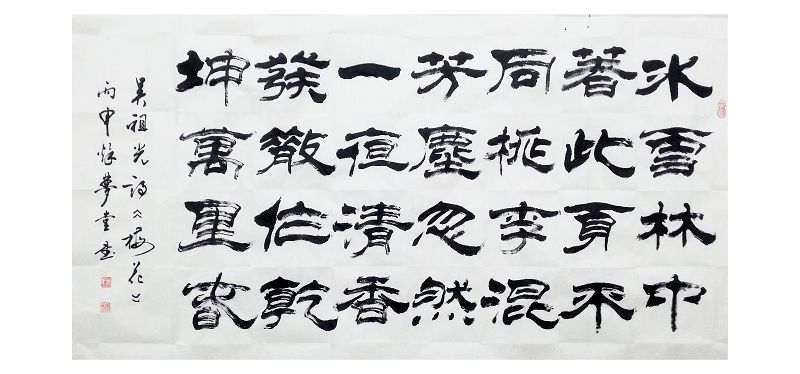 冰雪林中
著此身不
同桃李混
芳塵忽然
一夜清香
發散作乾
坤萬里春
吴祖光詩《梅花》
丙申 夢堂書